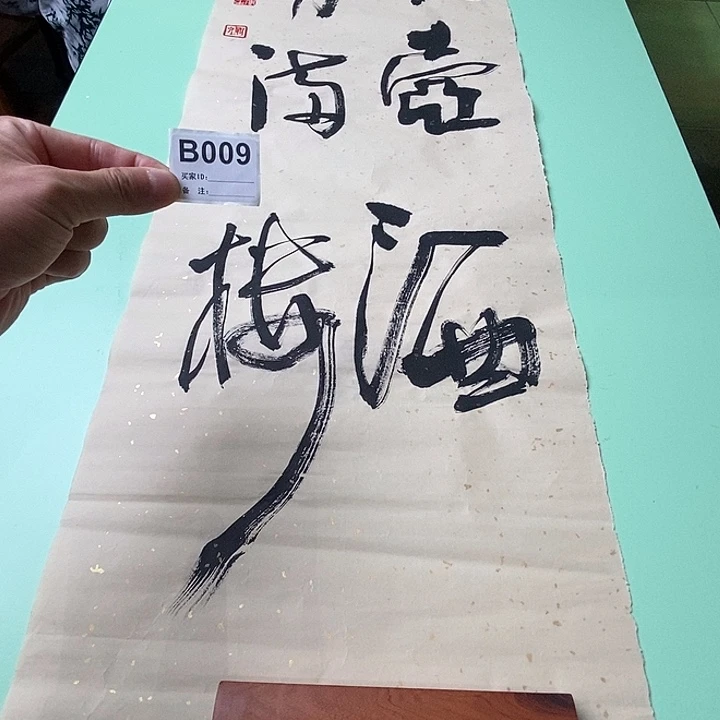 壶酒
满楼
B009
买家ID:
备 注: